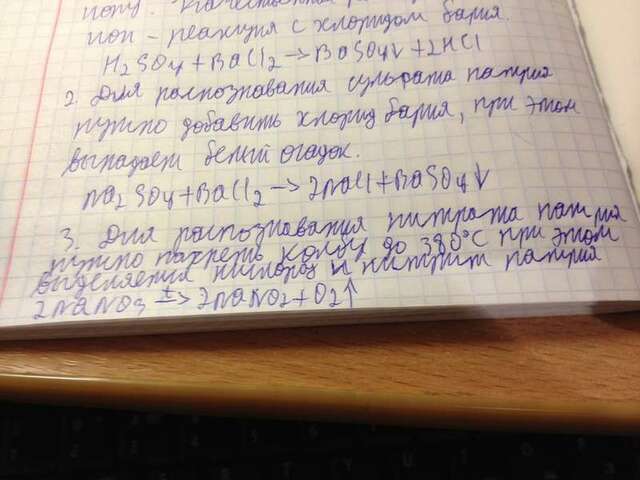 иону. Качественная
ион - реакция с хлоридом бария.
H2SO4 + BaCl2 → BaSO4↓ + 2HCl
2. Для распознавания сульфата натрия
нужно добавить хлорид бария, при этом
выпадает белый осадок.
Na2SO4 + BaCl2 → 2NaCl + BaSO4↓
3. Для распознавания нитрата натрия
нужно нагреть колбу до 380°C при этом
выделяется кислород и нитрит натрия
2NaNO3 t→ 2NaNO2 + O2↑